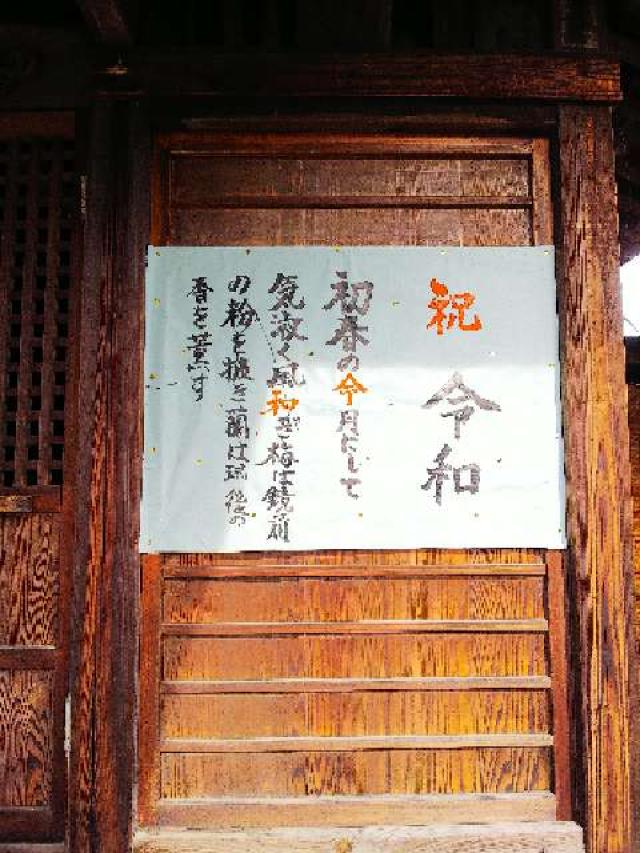 祝 令和
初春の令月にして
気淑く風和ぎ梅は鏡前
の粉を披き蘭は珮後の
香を薫す